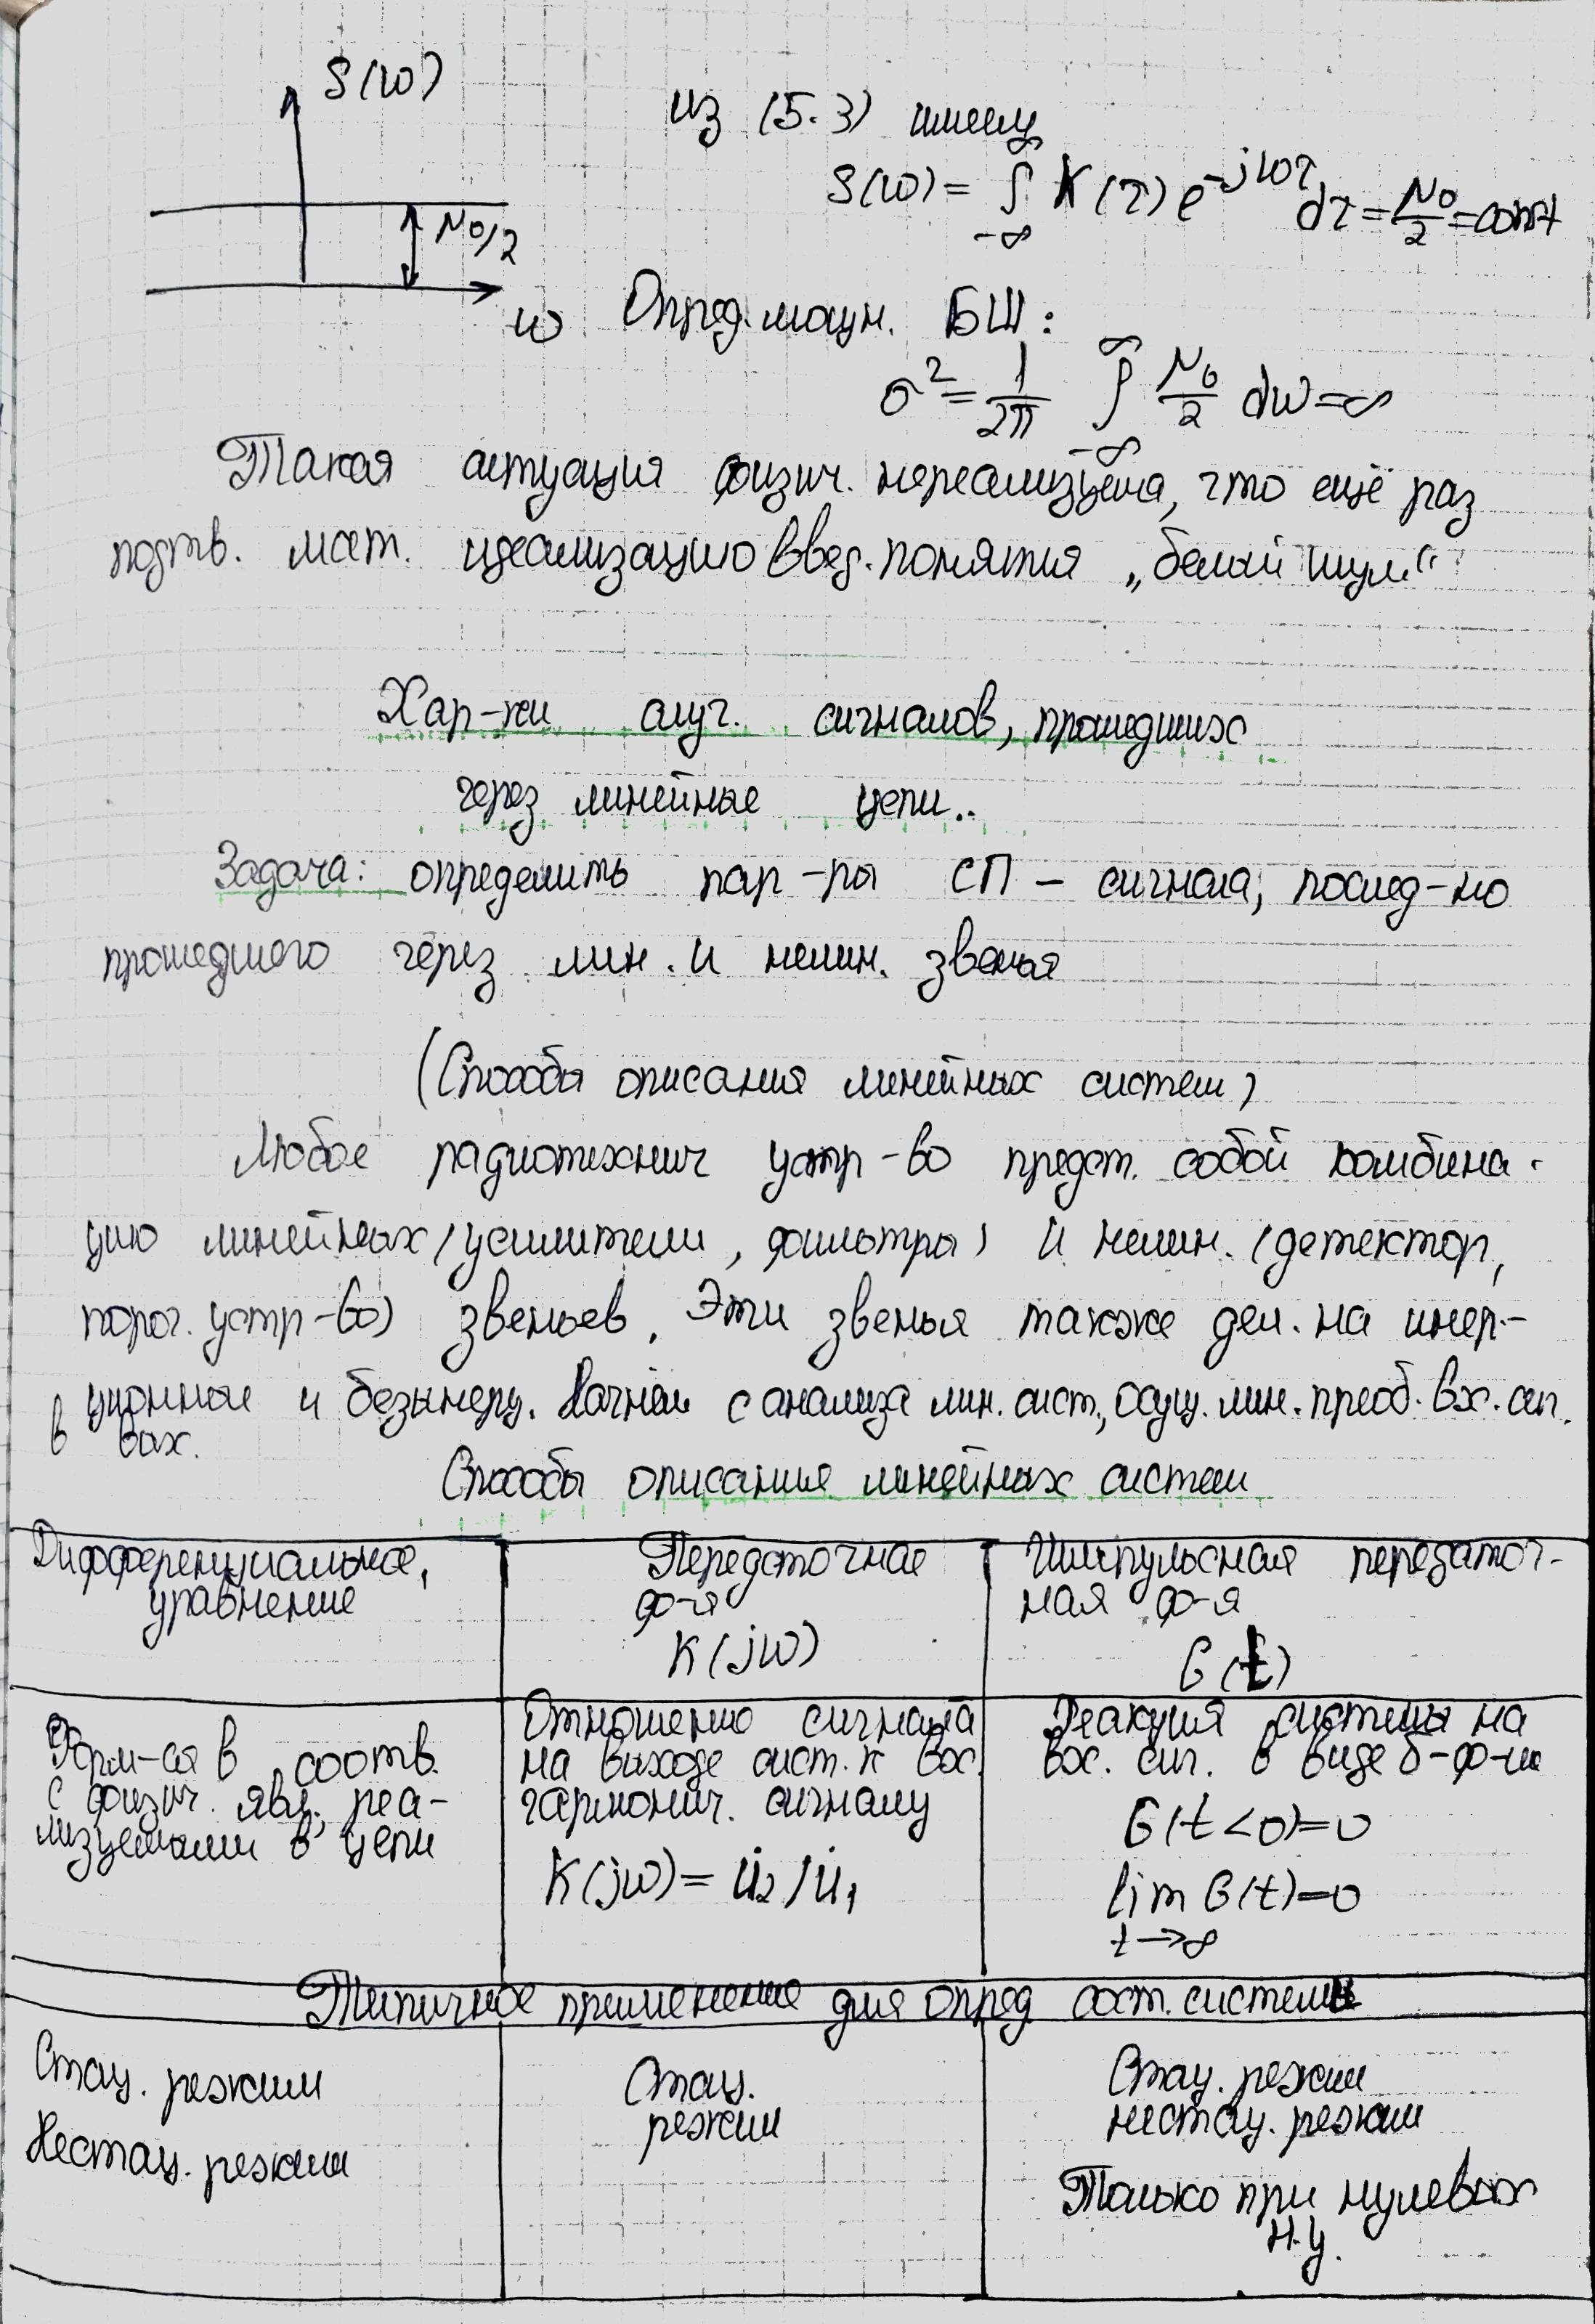 S(ω)
N0/2
ω
из (5.3) имеем
S(ω) = ∫_{-∞}^{∞} K(τ) e^{-jωτ} dτ = N0/2 = const
Опред. мощн. БШ:
σ² = 1/2π ∫_{-∞}^{∞} N0/2 dω = ∞
Такая ситуация физич. нереализуема, что ещё раз
подтв. мат. идеализацию введ. понятия „белый шум“
Хар-ки случ. сигналов, прошедших
через линейные цепи..
Задача: определить пар-ры СП – сигнала, послед-но
прошедшего через лин. и нелин. звенья
(Способы описания линейных систем)
Любое радиотехнич устр-во предст. собой комбина-
цию линейных (усилители, фильтры) и нелин. (детектор,
порог. устр-во) звеньев. Эти звенья также дел. на инер-
ционные и безынерц. Начнём с анализа лин. сист., осущ. лин. преоб. вх. сл.
в вых.
Способы описания линейных систем
Дифференциальное,
уравнение
Передаточная
ф-я
K(jω)
Импульсная передаточ-
ная ф-я
G(t)
Форм-ся в соотв.
с физич. явл. реа-
лизуемыми в цепи
Отношению сигнала
на выходе сист. к вх.
гармонич. сигналу
K(jω) = U̇2/U̇1
Реакция системы на
вх. сиг. в виде δ-ф-ии
G(t<0)=0
lim G(t)=0
t→∞
Типичное применение для опред сост. системы
Стац. режим
Нестац. режим
Стац.
режим
Стац. режим
нестац. режим
Только при нулевых
н.у.